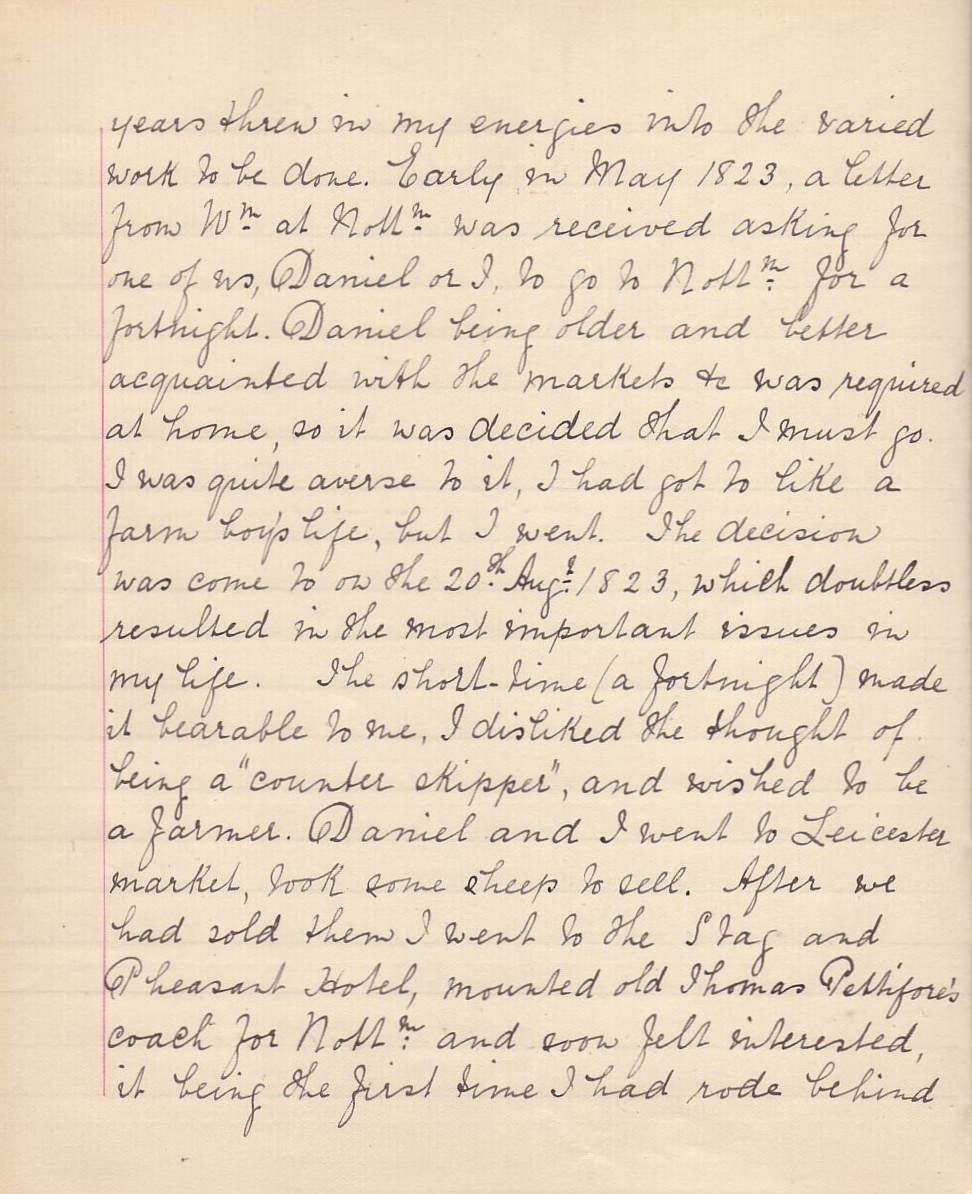 years threw in my energies into the varied
work to be done. Early in May 1823, a letter
from Wm at Nottm was received asking for
one of us, Daniel or I, to go to Nottm for a
fortnight. Daniel being older and better
acquainted with the markets &c was required
at home, so it was decided that I must go.
I was quite averse to it, I had got to like a
farm boy's life, but I went. The decision
was come to on the 20th Augt 1823, which doubtless
resulted in the most important issues in
my life. The short-time (a fortnight) made
it bearable to me, I disliked the thought of
being a "counter skipper", and wished to be
a farmer. Daniel and I went to Leicester
market, took some sheep to sell. After we
had sold them I went to the Stag and
Pheasant Hotel, mounted old Thomas Pettifore's
coach for Nottm and soon felt interested,
it being the first time I had rode behind